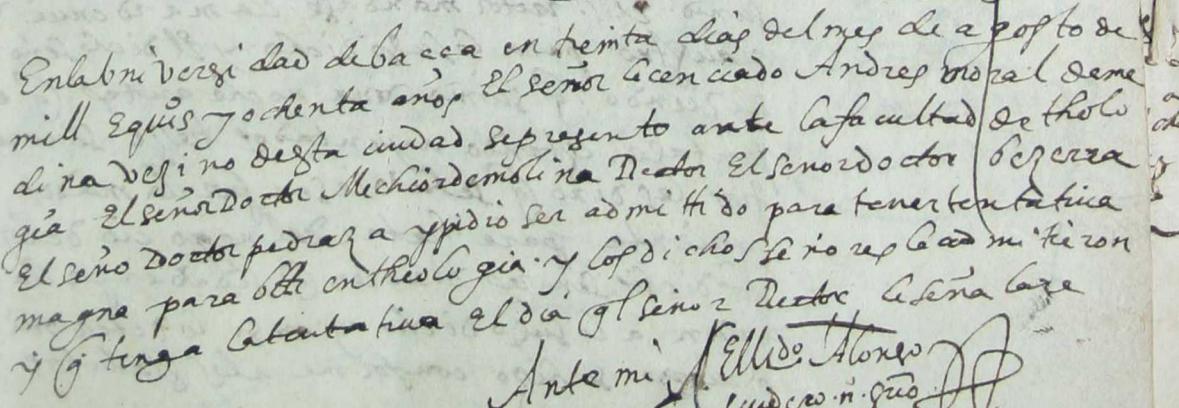 En la bni versi dad de baeca en treinta dias del mes de agosto de
mill E quis y ochenta años El señor licenciado Andres moral de me
di na vezi no desta ciudad se presento ante la facultad de tholo
gia El señor Doctor Melchior de molina Rector El senor doctor bezerra
El seño Doctor pedraza y pidio ser admittido para tener tentatiua
magna para en theolo gia. y los dichos señores le admitieron
y q tenga la tentatiua El dia ql señor Rector le señalare
Ante mi Alonso
n.